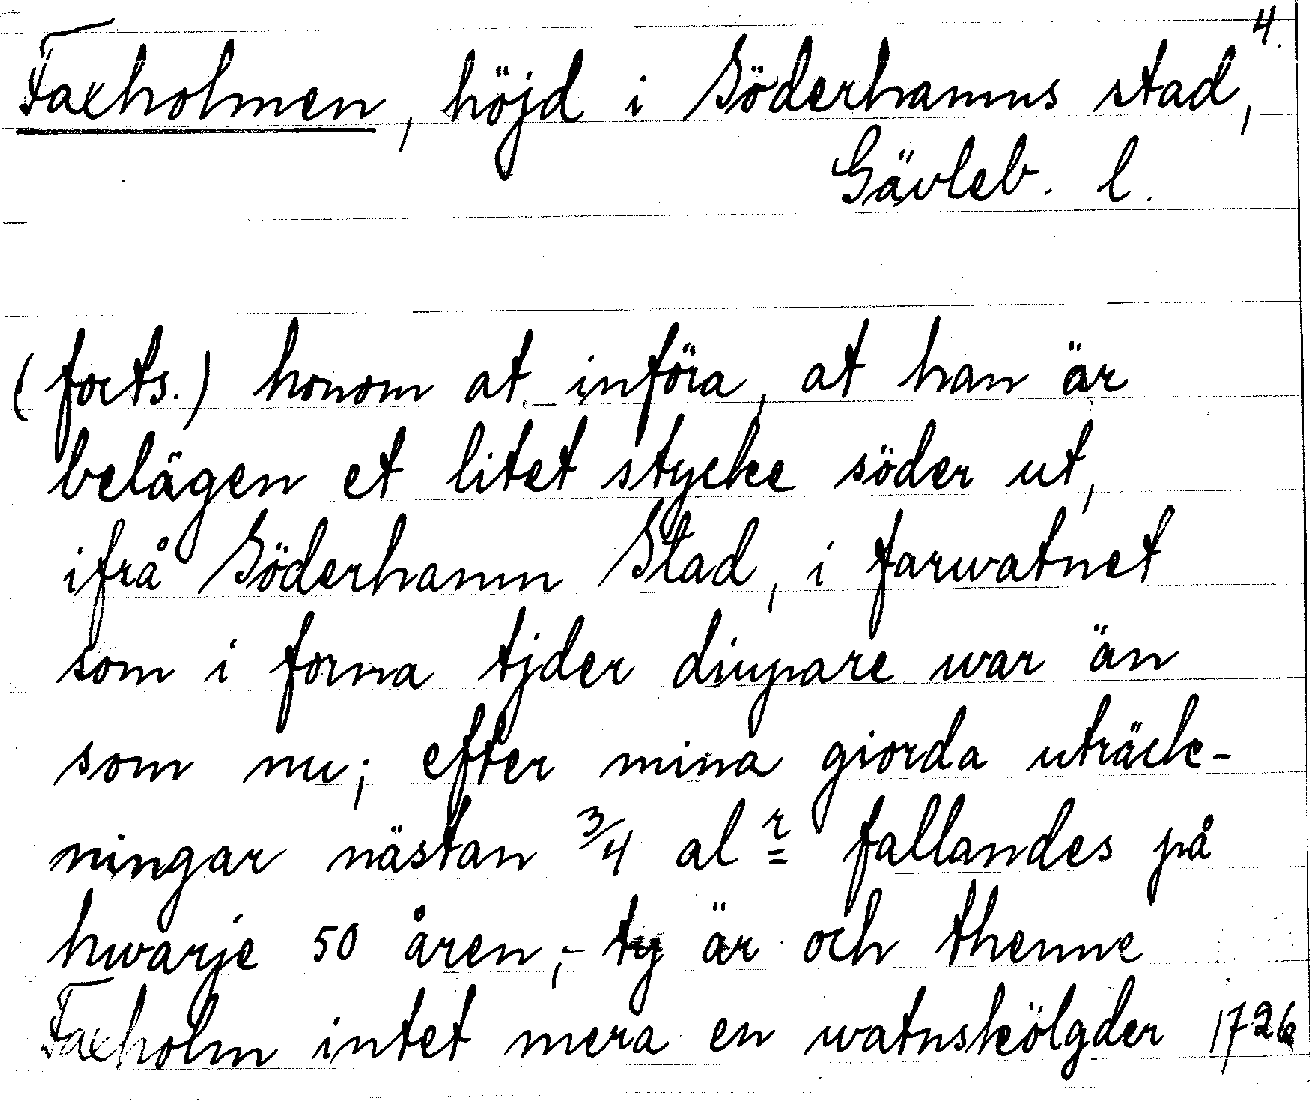 4.
Faxholmen, höjd i Söderhamns stad,
Gävleb. l.
(forts.) honom at införa, at han är
belägen et litet stycke söder ut,
ifrå Söderhamn Stad, i farwatnet
som i forna tjder diupare war än
som nu; efter mina giorda uträck-
ningar nästan 3/4 alr fallandes på
hwarje 50 åren;- ty är och thenne
Faxholm intet mera en watnskölgder 1726